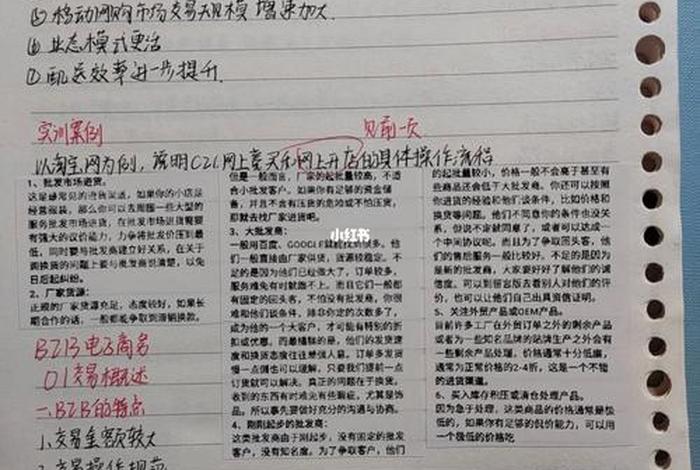 ⑤ 移动网购市场交易规模 增速加大.
⑥ 业态模式更活
⑦ 配送效率进一步提升.
实训案例
见前一页
以淘宝网为例,说明C2C网上卖买和网上开店的具体操作流程
1、批发市场进货。
这是最常见的进货渠道,如果你的小店是
经营服装,那么你可以去周围一些大型的
服装批发市场进货,在批发市场进货需要
有强大的议价能力,力争将批价压到最
低,同时要与批发商建立好关系,在关于
调换货的问题上要与批发商说清楚,以免
日后起纠纷。
2、厂家货源:
正规的厂家货源充足,态度较好,如果长
期合作的话,一般都能争取到滞销换款。
B2B电子商务
01交易概述
一、B2B的特点
1、交易金额较大
2、交易操作规范
但是一般而言,厂家的起批量较高,不适
合小批发客户。如果你有足够的资金储
备,并且不会有压货的危险或不怕压货,
那就去找厂家进货吧。
3、大批发商:
一般用百度、GOOGLE就能找到很多。他
们一般直接由厂家供货,货源较稳定。不
足的是因为他们已经做大了,订单较多,
服务难免有时就跟不上。而且它们一般都
有固定的回头客,不怕没有批发商,你很
难和他们谈条件,除非你定的次数多了,
成为他的一个大客户,才可能有特别的折
扣或优惠。而最糟糕的是,他们的发货速
度和换货态度往往差强人意。订单多发货
慢一点倒也可以理解,只要我们提前一点
订货就可以解决。真正的问题在于换货。
收到的东西有时难免有些瑕疵,尤其是饰
品。所以事先要做好充分的沟通与协商。
4、刚刚起步的批发商:
这类批发商由于刚起步,没有固定的批发
客户,没有知名度。为了争取客户,他们
的起批量较小,价格一般不会高于甚至有
些商品还会低于大批发商。你还可以按照
你进货的经验和他们谈条件,比如价格和
换货等问题。他们不同意你的条件也没关
系,但说不定就同意了,或者可以达成一
个中间协议呢。而且为了争取回头客,他
们的售后服务一般比较好。不足的是因为
是新的批发商,大家要好好了解他们的诚
信度。可以到留言版去看别人对他们的评
价,也可以让他们自己出具资信证明。
5、关注外贸产品或OEM产品。
目前许多工厂在外贸订单之外的剩余产品
或者为一些知名品牌的贴牌生产之外会有
一些剩余产品处理,价格通常十分低廉,
通常为正常价格的2-4折,这是一个不错
的进货渠道。
6、买入库存积压或清仓处理产品。
因为急于处理,这类商品的价格通常是极
低的,如果你有足够的侃价能力,可以用
一个极低的价格吃
小红书